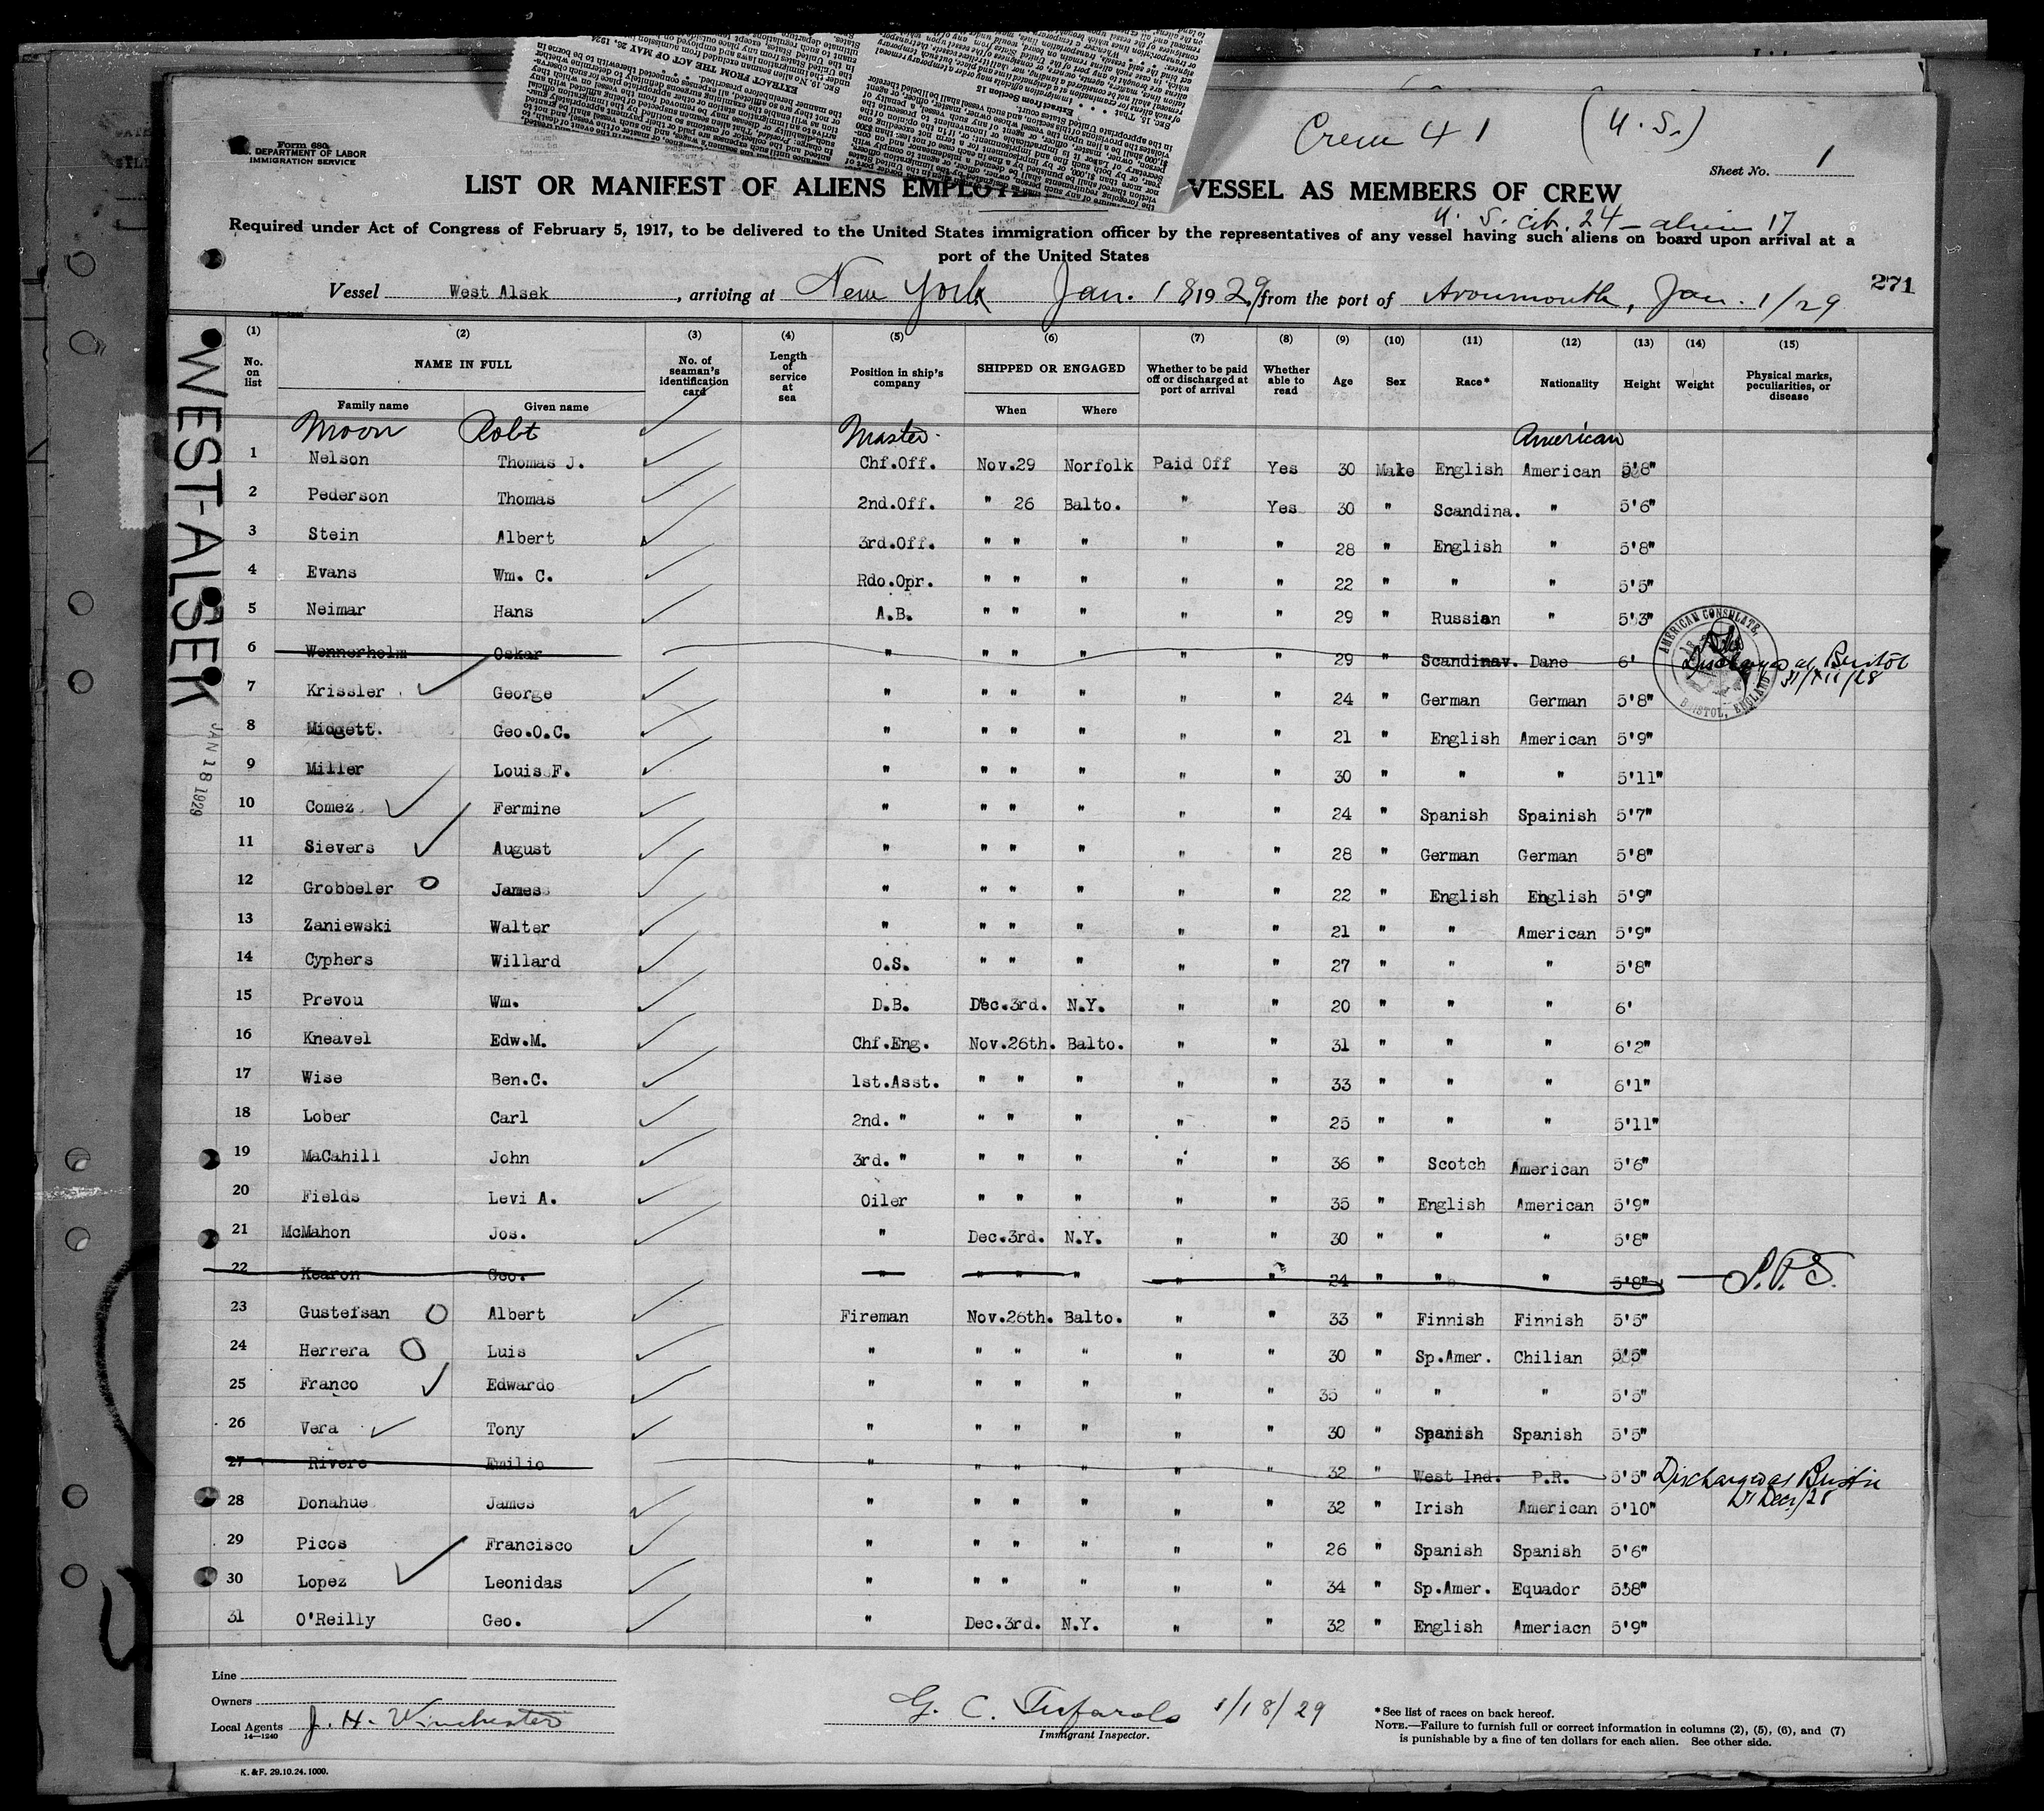 Form 680
DEPARTMENT OF LABOR
IMMIGRATION SERVICE
EXTRACT FROM THE ACT OF MAY 26, 1924
Extract from Section 15
Crew 41 (U.S.)
Sheet No. 1
LIST OR MANIFEST OF ALIENS EMPLO VESSEL AS MEMBERS OF CREW
U.S. cit. 24 - alien 17
Required under Act of Congress of February 5, 1917, to be delivered to the United States immigration officer by the representatives of any vessel having such aliens on board upon arrival at a
port of the United States
Vessel West Alsek, arriving at New York Jan. 18 1929, from the port of Avonmouth, Jan. 1/29
271
WEST-ALSEK
JAN 18 1929
(1) (2) (3) (4) (5) (6) (7) (8) (9) (10) (11) (12) (13) (14) (15)
No. on list NAME IN FULL Family name Given name No. of seaman's identification card Length of service at sea Position in ship's company SHIPPED OR ENGAGED When Where Whether to be paid off or discharged at port of arrival Whether able to read Age Sex Race* Nationality Height Weight Physical marks, peculiarities, or disease
Moon Robt Master. American
1 Nelson Thomas J. Chf.Off. Nov.29 Norfolk Paid Off Yes 30 Make English American 5'8"
2 Pederson Thomas 2nd.Off. " 26 Balto. " Yes 30 " Scandina. " 5'6"
3 Stein Albert 3rd.Off. " " " " " 28 " English " 5'8"
4 Evans Wm. C. Rdo.Opr. " " " " " 22 " " " 5'5"
5 Neimar Hans A.B. " " " " " 29 " Russian " 5'3"
6 Wennerholm Oskar " " " " " " 29 " Scandinav. Dane 6' Discharged at Bristol
31/XII/28
AMERICAN CONSULATE, BRISTOL, ENGLAND
7 Krissler George " " " " " " 24 " German German 5'8"
8 Midgett. Geo.O.C. " " " " " " 21 " English American 5'9"
9 Miller Louis F. " " " " " " 30 " " " 5'11"
10 Comez Fermine " " " " " " 24 " Spanish Spainish 5'7"
11 Sievers August " " " " " " 28 " German German 5'8"
12 Grobbeler James " " " " " " 22 " English English 5'9"
13 Zaniewski Walter " " " " " " 21 " " American 5'9"
14 Cyphers Willard O.S. " " " " " 27 " " " 5'8"
15 Prevou Wm. D.B. Dec.3rd. N.Y. " " 20 " " " 6'
16 Kneavel Edw.M. Chf.Eng. Nov.26th. Balto. " " 31 " " " 6'2"
17 Wise Ben.C. 1st.Asst. " " " " " 33 " " " 6'1"
18 Lober Carl 2nd. " " " " " " 25 " " " 5'11"
19 MaCahill John 3rd. " " " " " " 36 " Scotch American 5'6"
20 Fields Levi A. Oiler " " " " " 35 " English American 5'9"
21 McMahon Jos. " Dec.3rd. N.Y. " " 30 " " " 5'8"
22 Kearon Geo. " " " " " " 24 " " " 5'8"
23 Gustefsan Albert Fireman Nov.26th. Balto. " " 33 " Finnish Finnish 5'5"
24 Herrera Luis " " " " " " 30 " Sp.Amer. Chilian 5'5"
25 Franco Edwardo " " " " " " 35 " " " 5'5"
26 Vera Tony " " " " " " 30 " Spanish Spanish 5'5"
27 Rivere Emilio " " " " " " 32 " West Ind. P.R. 5'5" Discharged at
28 Donahue James " " " " " " 32 " Irish American 5'10"
29 Picos Francisco " " " " " " 26 " Spanish Spanish 5'6"
30 Lopez Leonidas " " " " " " 34 " Sp.Amer. Equador 5'8"
31 O'Reilly Geo. " Dec.3rd. N.Y. " " 32 " English Ameriacn 5'9"
Line
Owners
Local Agents J. H. Winchester
14—1240
G. C. 1/18/29
Immigrant Inspector.
*See list of races on back hereof.
NOTE.—Failure to furnish full or correct information in columns (2), (5), (6), and (7)
is punishable by a fine of ten dollars for each alien. See other side.
K. & F. 29.10.24.1000.